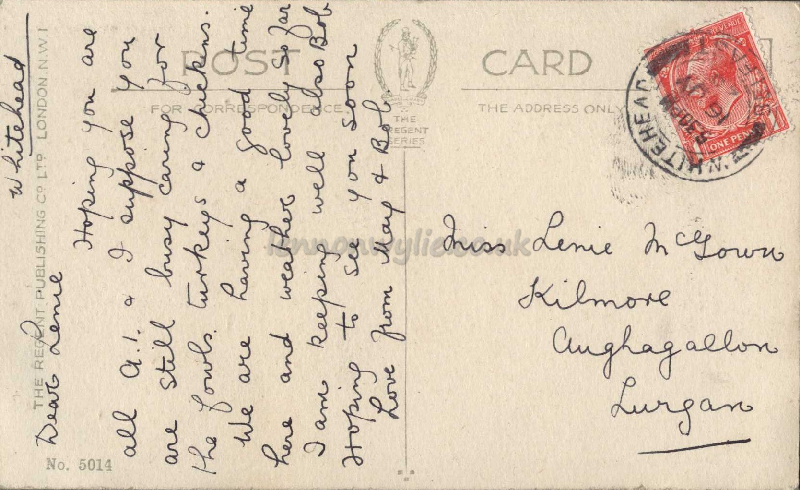 Whitehead
Dear Lenie
Hoping you are
all A.1. & I suppose you
are still busy caring for
the fowls. turkeys & chickens.
We are having a good time
here and weather lovely so far
I am keeping well also Bob
Hoping to see you soon
Love from May & Bob
POST CARD
FOR CORRESPONDENCE
THE ADDRESS ONLY
THE
REGENT
SERIES
THE REGENT PUBLISHING CO LTD LONDON. N.W.1
No. 5014
Miss Lenie McGown
Kilmore
Aughagallon
Lurgan
WHITEHEAD
BELFAST
5.30 PM
16
ONE PENNY
lennonwylie.co.uk